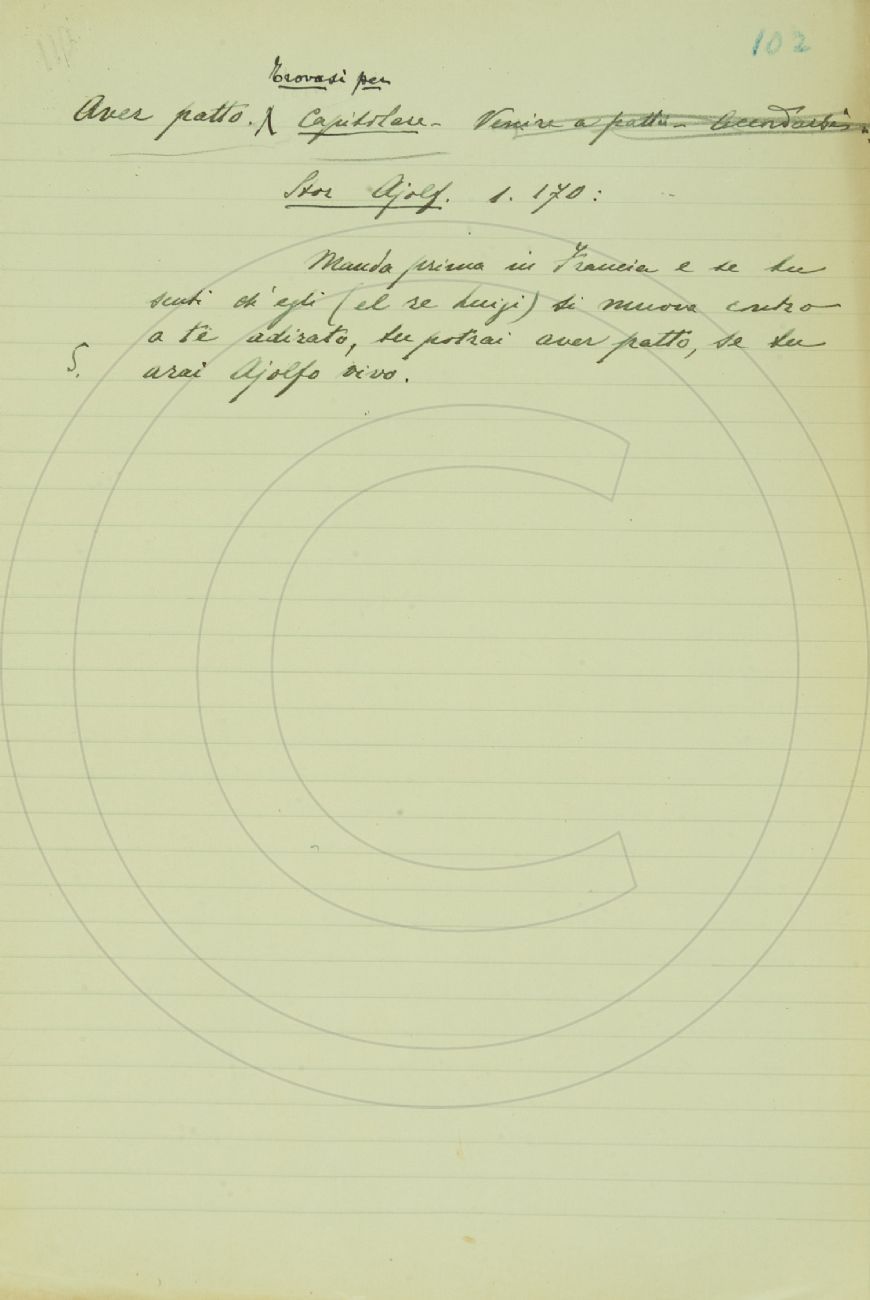 102
Trovasi per
Aver patto. Capitolare - Venire a patti - Accordarsi.
Stor Ajolf. 1. 170:
Manda prima in Francia e se tu
senti ch'egli (el re Luigi) si muova contro
a te adirato, tu potrai aver patto, se tu
S.
arai Ajolfo vivo.